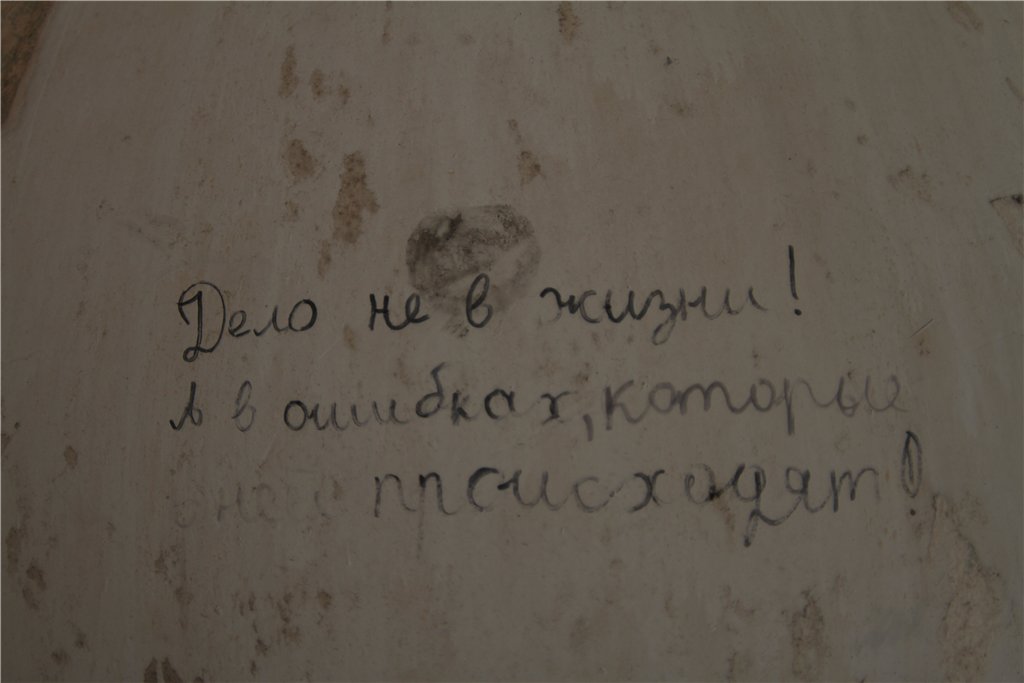 Дело не в жизни!
А в ошибках, которые
происходят!